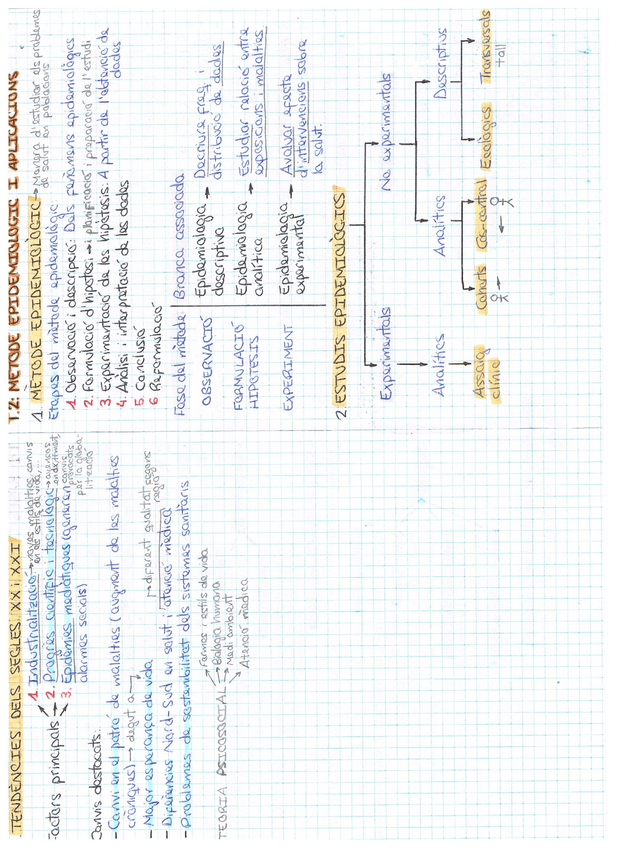 TENDÈNCIES DELS SEGLES XX i XXI
Factors principals
1. Industrialització → noves malalties, canvis
en els estils de vida,...
2. Progrés científic i tecnològic → avenços
3. Epidèmies mediàtiques (generen
alarmes socials)
canvis
provocats
per la globa-
lització
Canvis destacats:
- Canvi en el patró de malalties (augment de les malalties
cròniques) → degut a
- Major esperança de vida
- Diferències Nord-Sud en salut i atenció mèdica
→ diferent qualitat segons
regió
- Problemes de sostenibilitat dels sistemes sanitaris
TEORIA PSICOSOCIAL
Formes i estils de vida
Biologia humana
Medi ambient
Atenció mèdica
T.2: MÈTODE EPIDEMIOLÒGIC I APLICACIONS
1. MÈTODE EPIDEMIOLÒGIC → Manera d'estudiar els problemes
de salut en poblacions
Etapes del mètode epidemiològic
1. Observació i descripció: Dels fenòmens epidemiològics
2. Formulació d'hipòtesi → i planificació i preparació de l'estudi
3. Experimentació de les hipòtesis: A partir de l'obtenció de
dades
4. Anàlisi i interpretació de les dades
5. Conclusió
6 Reformulació
Fase del mètode
Branca associada
OBSERVACIÓ
Epidemiologia
descriptiva
→ Descriure freq. i
distribució de dades
FORMULACIÓ
HIPÒTESIS
Epidemiologia
analítica
→ Estudiar relació entre
exposicions i malalties.
EXPERIMENT
Epidemiologia
experimental
→ Avaluar efecte
d'intervencions sobre
la salut.
2. ESTUDIS EPIDEMIOLÒGICS
Experimentals
No experimentals
Analítics
Analítics
Descriptius
Assaig
clínic
Cohorts
Cas-control
Ecològics
Transversals
tall